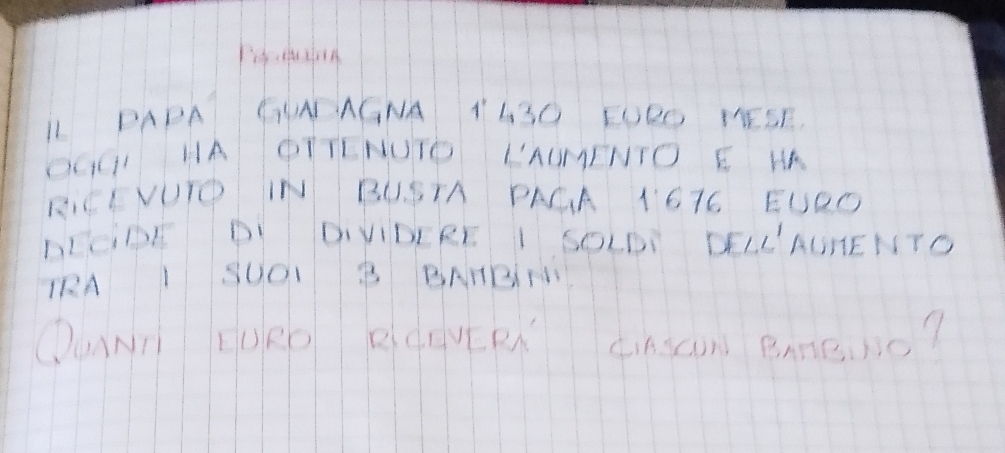 IL PAPA' GUADAGNA 1'430 EURO MESE.
OGGI HA OTTENUTO L'AUMENTO E HA
RICEVUTO IN BUSTA PAGA 1'676 EURO
DECIDE DI DIVIDERE I SOLDI DELL'AUMENTO
TRA I SUOI 3 BAMBINI.
QUANTI EURO RICEVERA' CIASCUN BAMBINO?